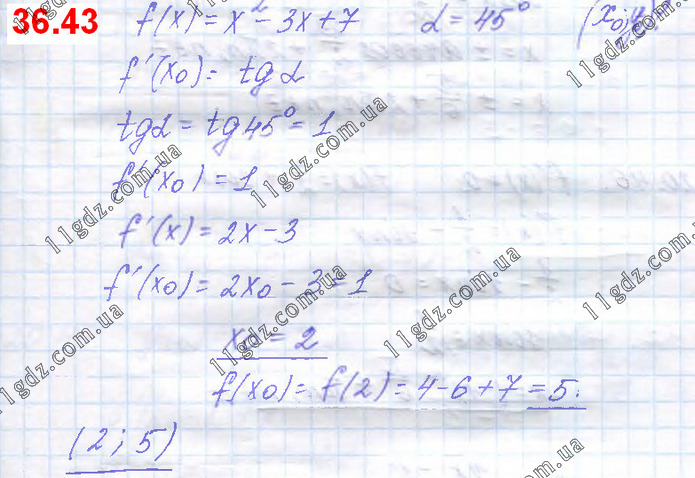 36.43
f(x) = x² - 3x + 7   α = 45°   (x₀; y₀) - ?
f'(x₀) = tg α
tg α = tg 45° = 1
f'(x₀) = 1
f'(x) = 2x - 3
f'(x₀) = 2x₀ - 3 = 1
x₀ = 2
f(x₀) = f(2) = 4 - 6 + 7 = 5.
(2; 5)
11gdz.com.ua
11gdz.com.ua
11gdz.com.ua
11gdz.com.ua
11gdz.com.ua
11gdz.com.ua
11gdz.com.ua